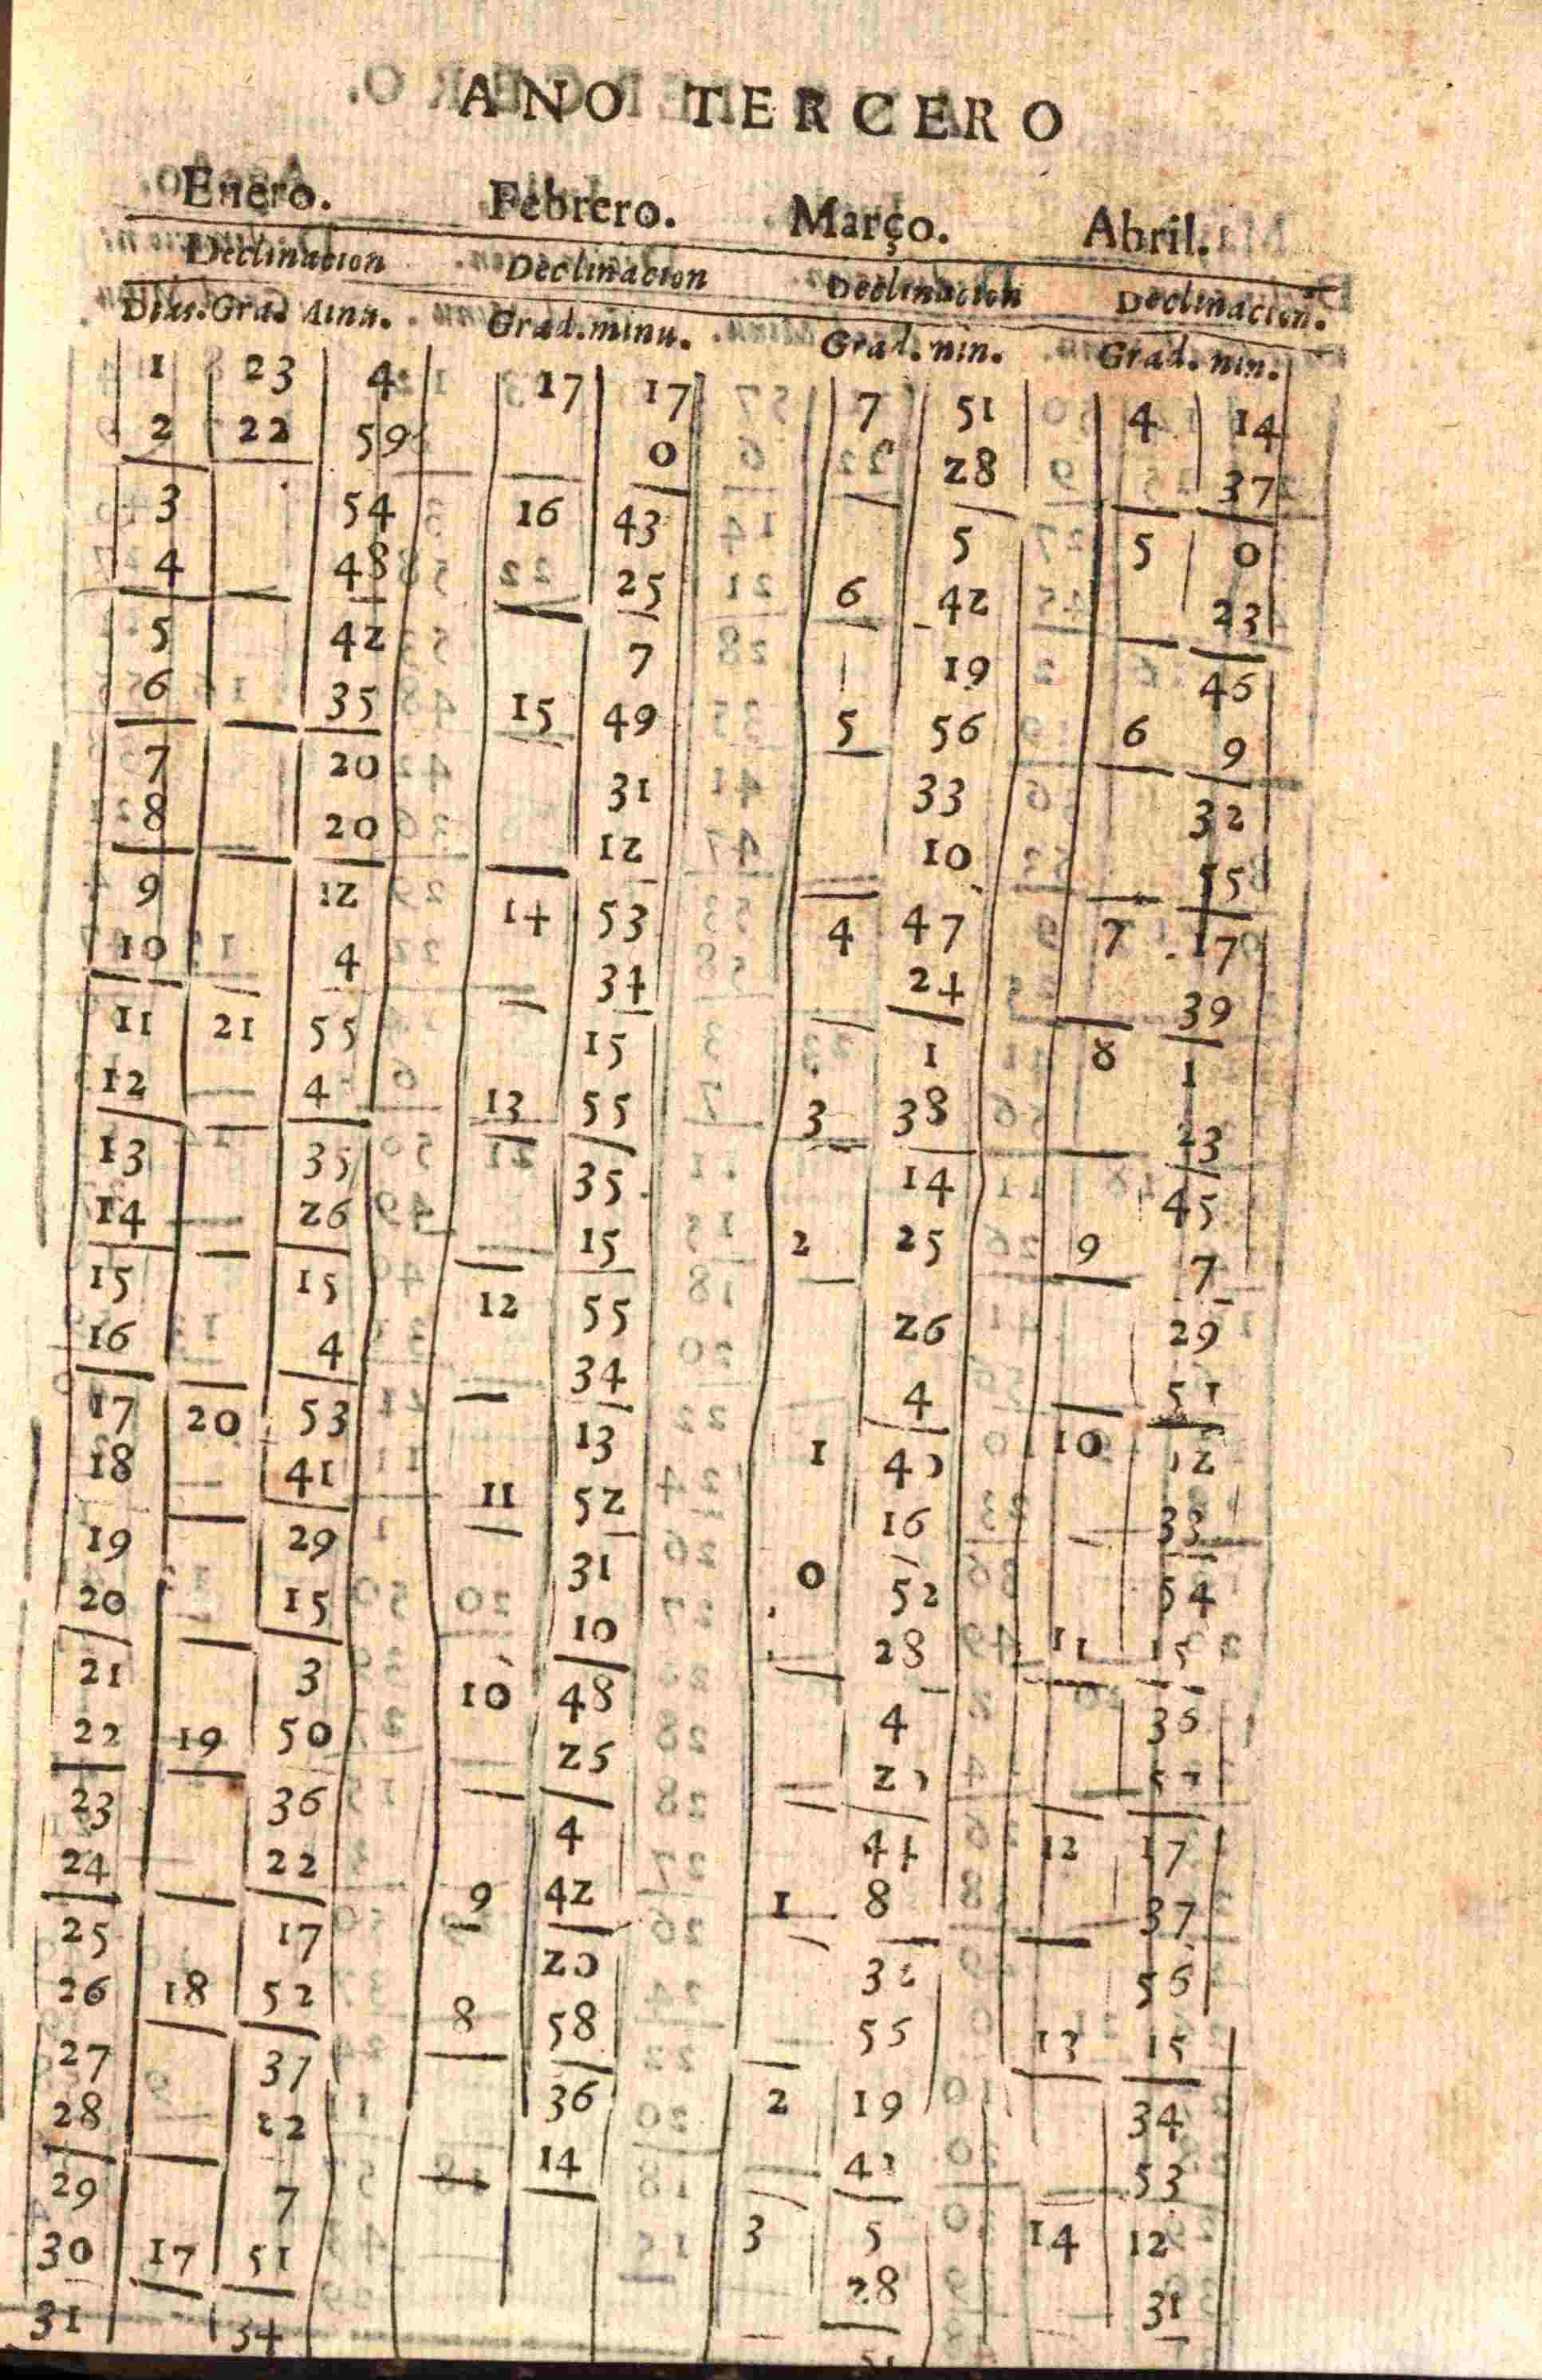 ANO TERCERO
Enero. Febrero. Março. Abril.
Declinacion Declinacion Declinacion Declinacion.
Dias. Gra. Minu. Grad. minu. Grad. nin. Grad. nin.
1 23 4 17 17 7 51 4 14
2 22 59 0 z8 37
3 54 16 43 5 5 0
4 48 25 6 4z 23
5 4z 7 19 46
6 35 15 49 5 56 6 9
7 20 31 33 32
8 20 1z 10 55
9 1z 14 53 4 47 7 17
10 4 34 24 39
11 21 55 15 1 8 1
12 4 13 55 3 38 23
13 35 35 14 45
14 z6 15 2 25 9 7
15 15 12 55 z6 29
16 4 34 4 51
17 20 53 13 1 40 10 1z
18 41 11 5z 16 33
19 29 31 0 52 54
20 15 10 28 11 15
21 3 10 48 4 36
22 19 50 z5 z0
23 36 4 44 12 17
24 22 9 4z 1 8 37
25 17 z0 32 56
26 18 52 8 58 55 13 15
27 37 36 2 19 34
28 22 14 42 53
29 7 3 5 14 12
30 17 51 28 31
31 34 51